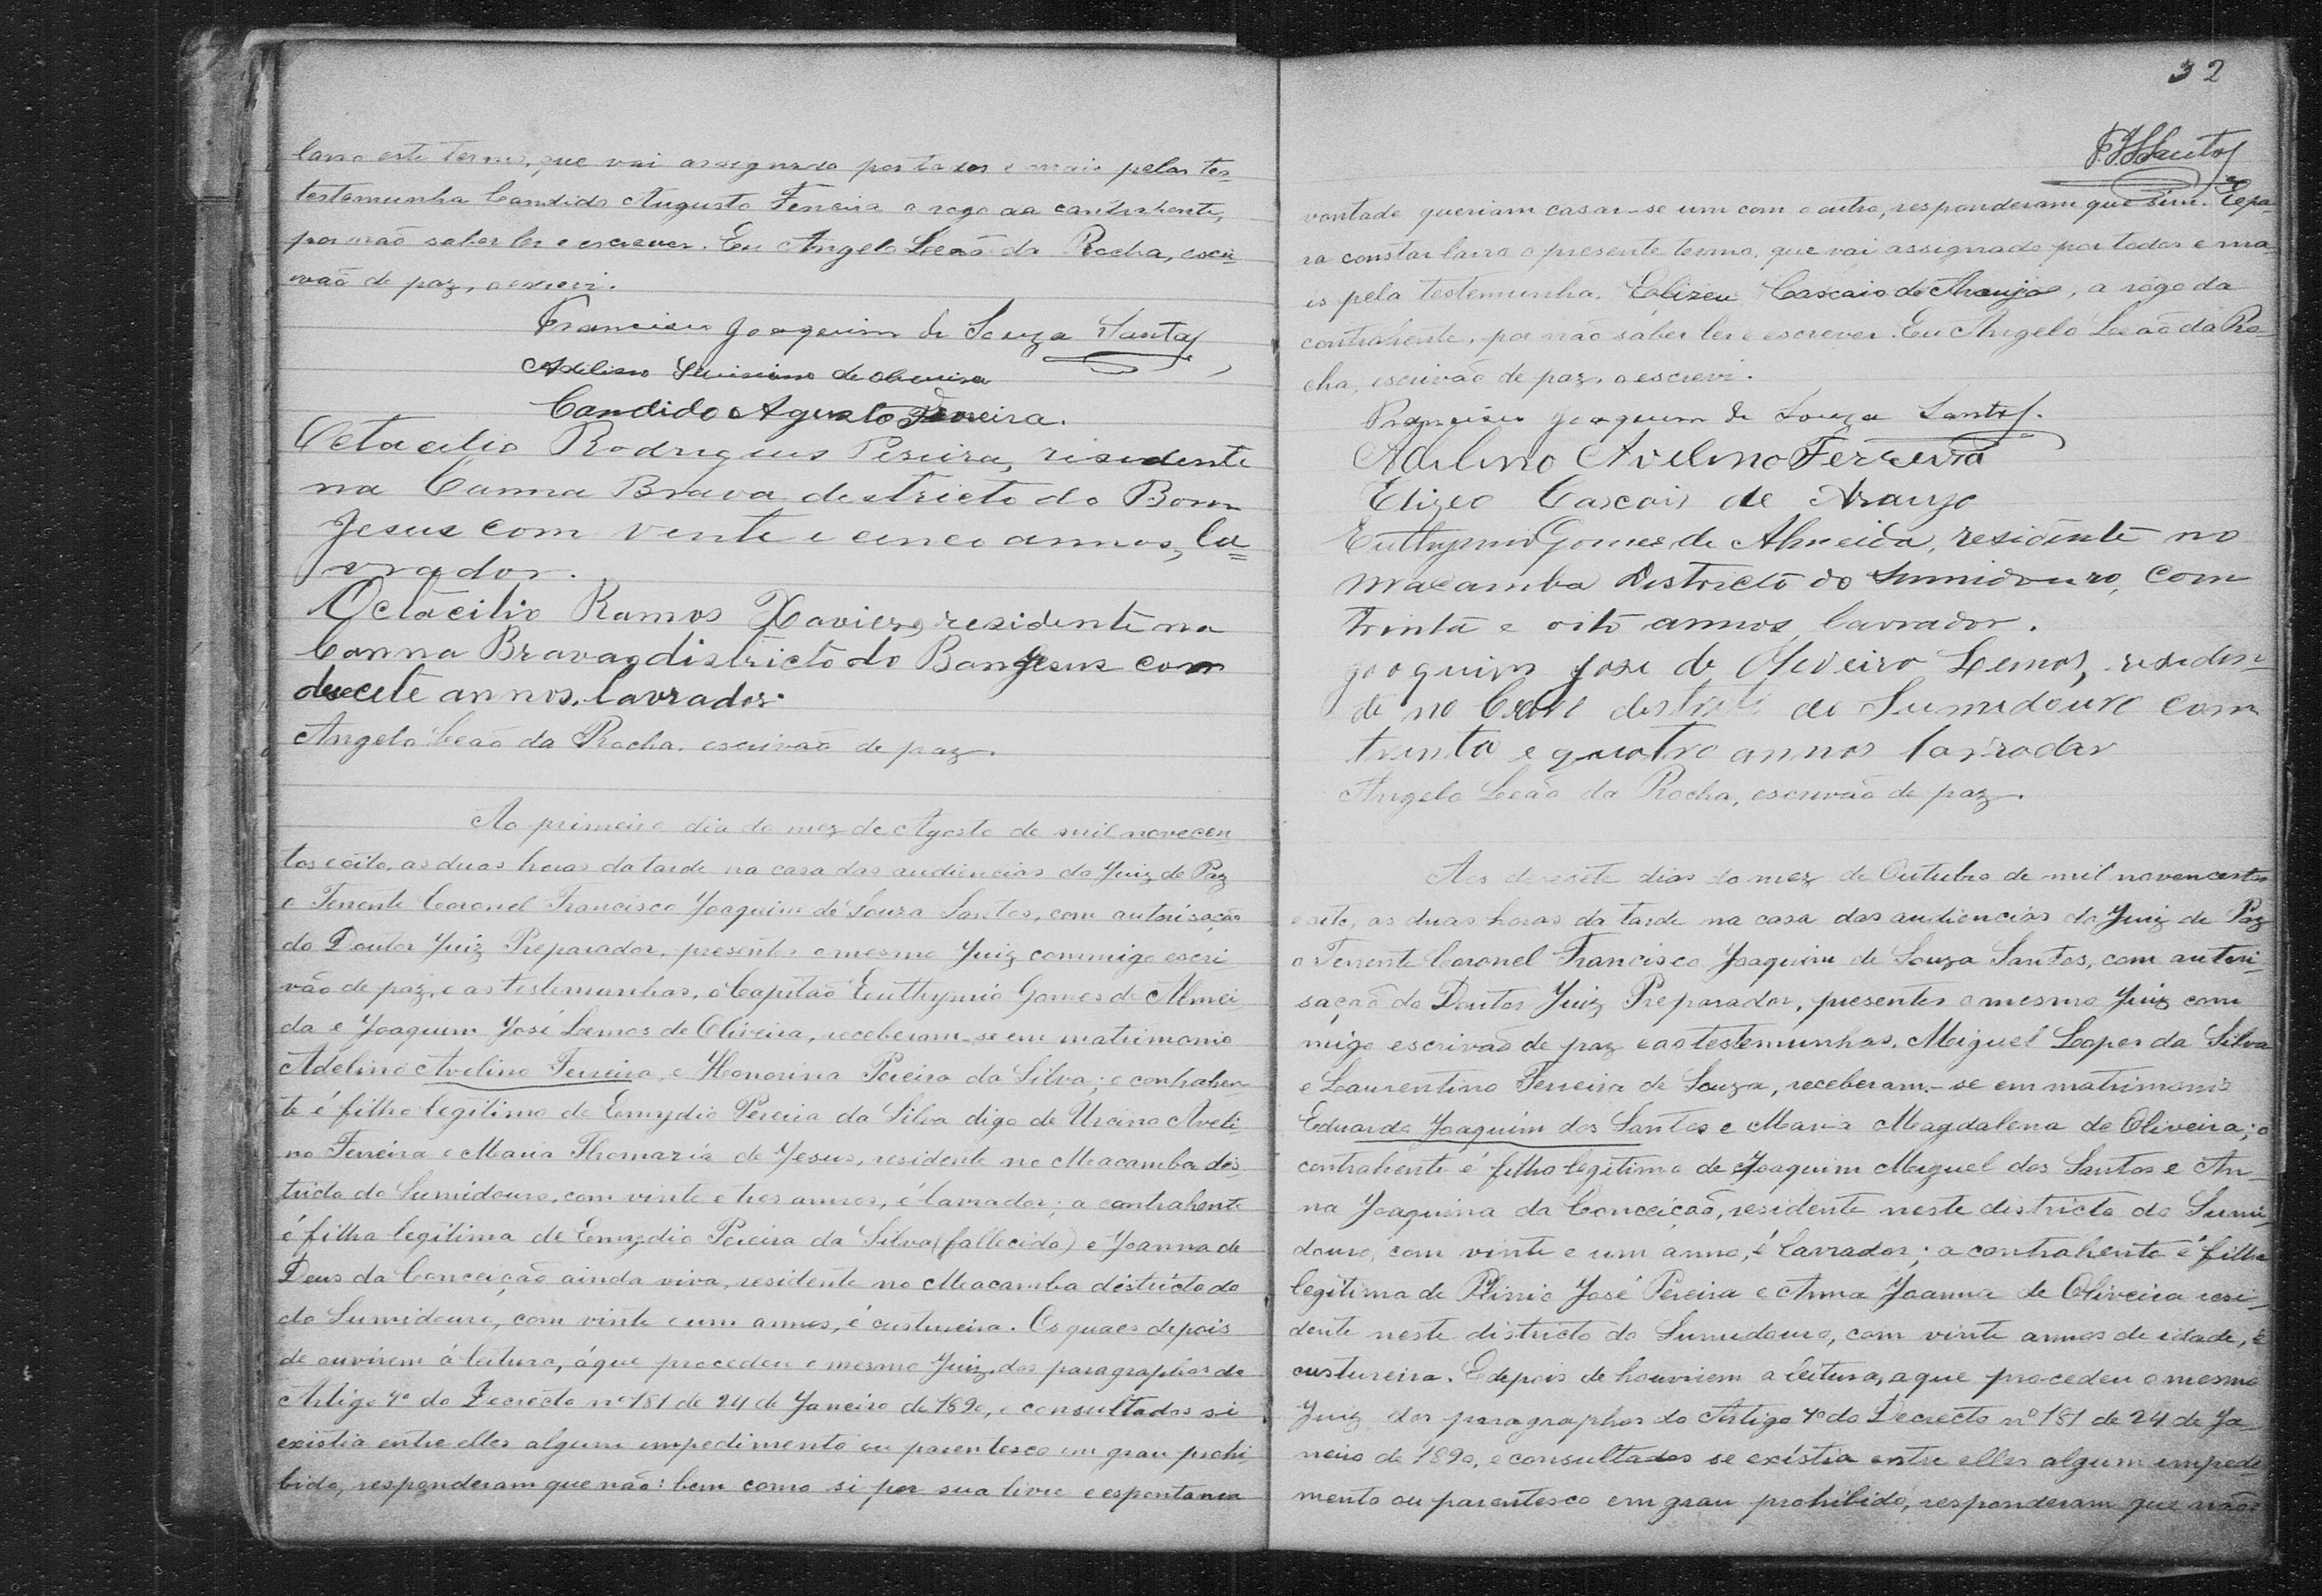 lavro este termo, que vai assignado por todos e mais pelas tes-
testemunha Candido Augusto Ferreira a rogo da contrahente,
por não saber ler e escrever. Eu Angelo Leão da Rocha, escri-
vão de paz, o escrevi.
Francisco Joaquim de Souza Santos
de Oliveira
Candido Agusto Ferreira.
Octacilio Rodrigues Pereira, residente
na Canna Brava destricto do Bom
Jesus com vente e cinco annos, la-
vrador.
Octacilio Ramos Xavier, residente na
Canna Brava districto do Bom Jesus com
desecete annos, lavrador.
Angelo Leão da Rocha, escrivão de paz.
Ao primeiro dia do mez de Agosto de mil novecen
tos e oito, as duas horas da tarde na casa das audiencias do Juiz de Paz
o Tenente Coronel Francisco Joaquim de Souza Santos, com autorisação
do Doutor Juiz Preparador, presentes o mesmo Juiz commigo escri
vão de paz, e as testemunhas, o Capitão Euthymio Gomes de Almei-
da e Joaquim José Lemos de Oliveira, receberam-se em matrimonio
Adelino Avelino Ferreira, e Honorina Pereira da Silva; o contrahen-
te é filho legitimo de Emydio Pereira da Silva digo de Ursino Aveli-
no Ferreira e Maria Thomazia de Jesus, residente no Macamba dis-
tricto do Sumidouro, com vinte e tres annos, é lavrador; a contrahente
é filha legitima de Emydio Pereira da Silva (fallecido) e Joanna de
Deus da Conceição ainda viva, residente no Macamba districto do
do Sumidouro, com vinte e um annos, é custureira. Os quaes depois
de ouvirem á leitura, á que procedeu o mesmo Juiz, dos paragraphos do
Artigo 7º do Decreto nº 181 de 24 de Janeiro de 1890, e consultados si
existia entre elles algum impedimento ou parentesco em grau prohi
bido, responderam que não: bem como si por sua livre e espontanea
32
F. J. S. Santos
vontade queriam casar-se um com o outro, responderam que sim. E pa-
ra constar lavro o presente termo, que vai assignado por todos e ma-
is pela testemunha. Elizeu Cascais de Araujo, a rogo da
contrahente, por não saber ler e escrever. Eu Angelo Leão da Ro-
cha, escrivão de paz, o escrevi.
Francisco Joaquim de Souza Santos.
Adelino Avelino Ferreira
Elizeo Cascais de Araujo
Euthymio Gomes de Almeida, residente no
Macamba Districto do Sumidouro, com
trinta e oito annos, lavrador.
Joaquim José de Oliveira Lemos, residen-
te no destricto do Sumidouro com
trinta e quatro annos lavrador
Angelo Leão da Rocha, escrivão de paz.
Aos desesete dias do mez de Outubro de mil novencentos
e oito, as duas horas da tarde na casa das audiencias do Juiz de Paz
o Tenente Coronel Francisco Joaquim de Souza Santos, com autori-
sação do Doutor Juiz Preparador, presentes o mesmo Juiz com
migo escrivão de paz e as testemunhas, Miguel Lopes da Silva
e Laurentino Ferreira de Souza, receberam-se em matrimonio
Eduardo Joaquim dos Santos e Maria Magdalena de Oliveira; o
contrahente é filho legitimo de Joaquim Miguel dos Santos e An-
na Joaquina da Conceição, residente neste districto do Sumi-
douro, com vinte e um anno, é lavrador; a contrahente é filha
legitima de Plinio José Pereira e Anna Joanna de Oliveira resi-
dente neste districto do Sumidouro, com vinte annos de idade, é
custureira. E depois de houvirem a leitura, a que procedeu o mesmo
Juiz dos paragraphos do Artigo 7º do Decreto nº 181 de 24 de Ja-
neiro de 1890, e consultados se existia entre elles algum impedi-
mento ou parentesco em grau prohibido, responderam que não: